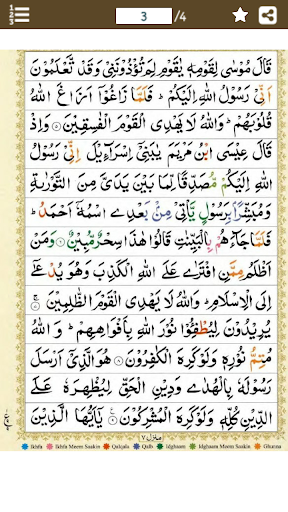 3 /4
قَالَ مُوْسٰى لِقَوْمِهٖ يٰقَوْمِ لِمَ تُؤْذُوْنَنِيْ وَقَدْ تَّعْلَمُوْنَ
اَنِّيْ رَسُوْلُ اللّٰهِ اِلَيْكُمْ ؕ فَلَمَّا زَاغُوْۤا اَزَاغَ اللّٰهُ
قُلُوْبَهُمْ ؕ وَاللّٰهُ لَا يَهْدِى الْقَوْمَ الْفٰسِقِيْنَ ۝ وَاِذْ
قَالَ عِيْسَى ابْنُ مَرْيَمَ يٰبَنِيْۤ اِسْرَآءِيْلَ اِنِّيْ رَسُوْلُ
اللّٰهِ اِلَيْكُمْ مُّصَدِّقًا لِّمَا بَيْنَ يَدَيَّ مِنَ التَّوْرٰىةِ
وَمُبَشِّرًۢا بِرَسُوْلٍ يَّاْتِيْ مِنْۢ بَعْدِى اسْمُهٗۤ اَحْمَدُ ؕ
فَلَمَّا جَآءَهُمْ بِالْبَيِّنٰتِ قَالُوْا هٰذَا سِحْرٌ مُّبِيْنٌ ۝ وَمَنْ
اَظْلَمُ مِمَّنِ افْتَرٰى عَلَى اللّٰهِ الْكَذِبَ وَهُوَ يُدْعٰۤى
اِلَى الْاِسْلَامِ ؕ وَاللّٰهُ لَا يَهْدِى الْقَوْمَ الظّٰلِمِيْنَ ۝
يُرِيْدُوْنَ لِيُطْفِـُٔوْا نُوْرَ اللّٰهِ بِاَفْوَاهِهِمْ ؕ وَاللّٰهُ
مُتِمُّ نُوْرِهٖ وَلَوْ كَرِهَ الْكٰفِرُوْنَ ۝ هُوَ الَّذِيْۤ اَرْسَلَ
رَسُوْلَهٗ بِالْهُدٰى وَدِيْنِ الْحَقِّ لِيُظْهِرَهٗ عَلَى
الدِّيْنِ كُلِّهٖ وَلَوْ كَرِهَ الْمُشْرِكُوْنَ ۝ يٰۤاَيُّهَا الَّذِيْنَ
منزل ٧
Ikhfa Ikhfa Meem Saakin Qalqala Qalb Idghaam Idghaam Meem Saakin Ghunna